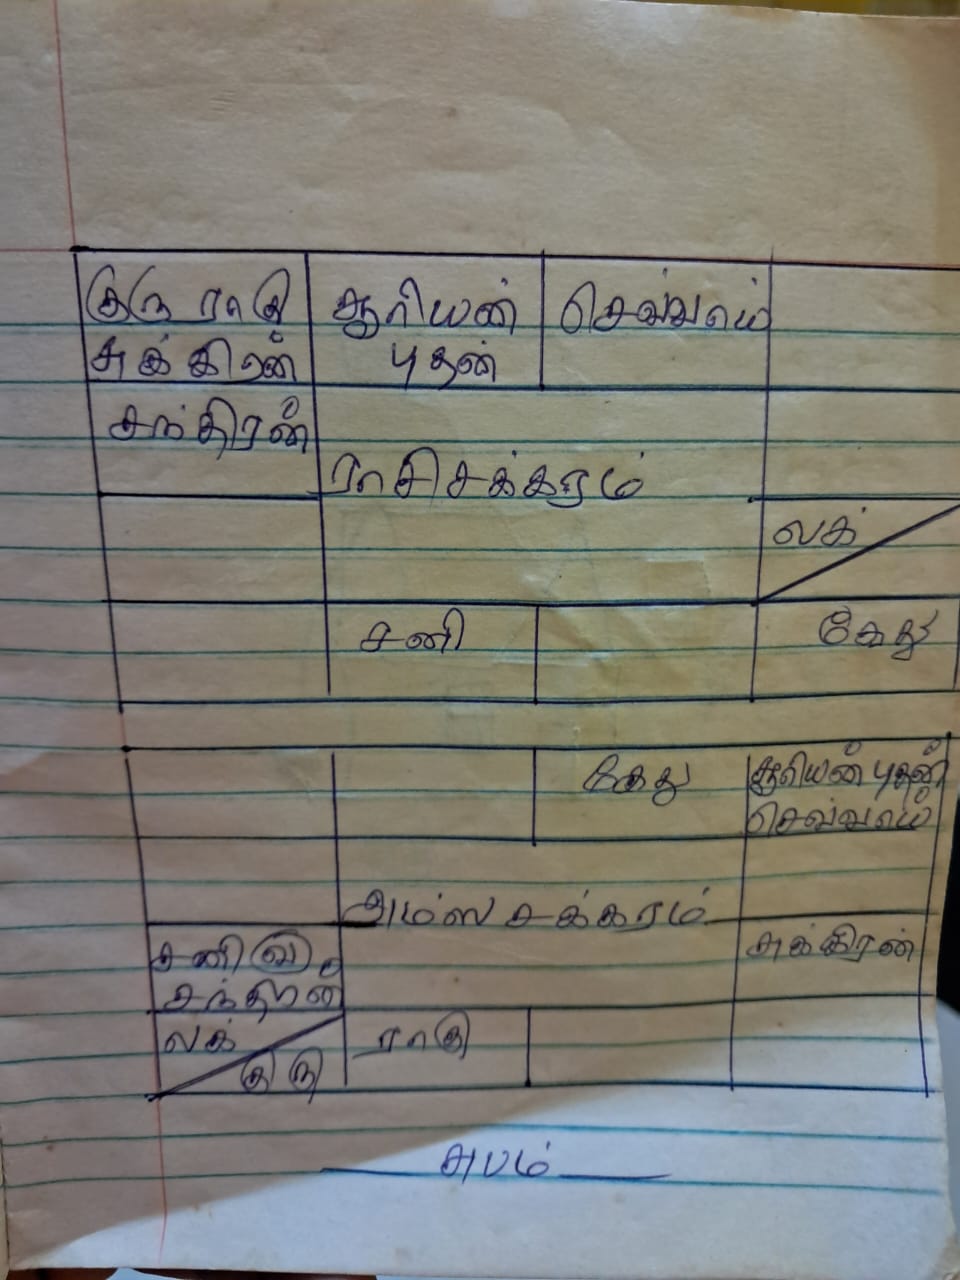 குரு ராகு
சுக்கிரன்
சூரியன்
புதன்
செவ்வாய்
சந்திரன்
ராசி சக்கரம்
லக்
சனி
கேது
கேது
சூரியன் புதன்
செவ்வாய்
அம்ஸ சக்கரம்
சனி வ
சந்திரன்
சுக்கிரன்
லக்
குரு
ராகு
சுபம்